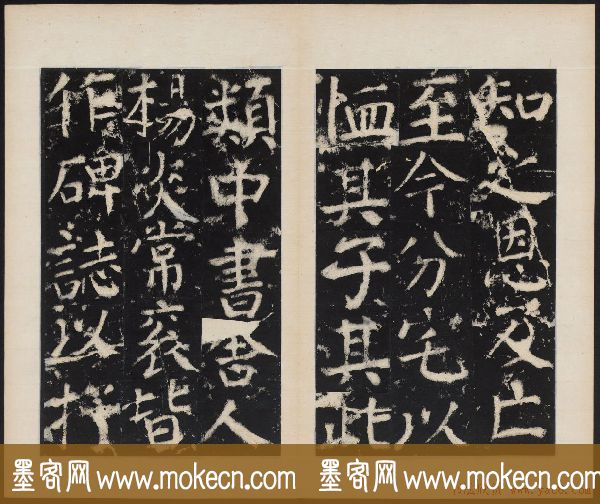 知之恩及亡
至今分宅以
恤其子其此
類中書舍人
楊炎常衮皆
作碑誌以抒
墨客网 www.mokecn.com
墨客网 www.mokecn.com